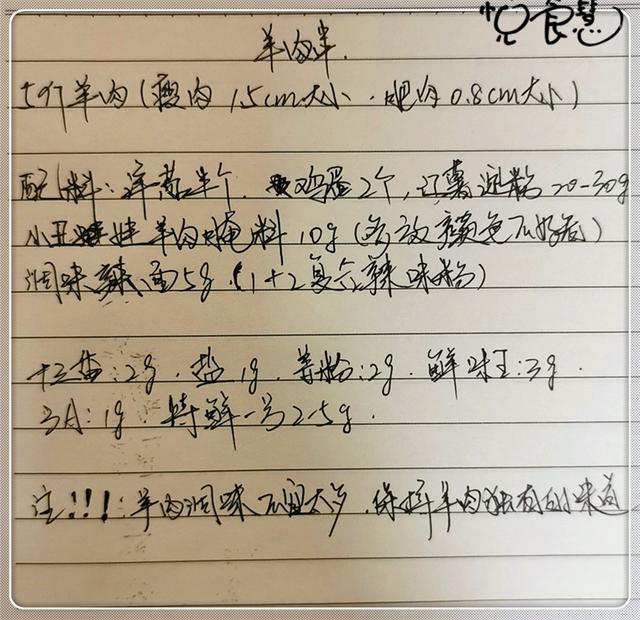 悦食慧
羊肉串.
5斤羊肉(瘦肉1.5cm大小.肥肉0.8cm大小)
配料:洋葱半个.鸡蛋2个,红薯淀粉20-30g
小王娃羊肉腌料10g(多放颜色不好看)
调味辣面5g(1+2复合辣味粉)
十三香:2g.盐1g.姜粉:2g.鲜味王:3g.
3A:1g.特鲜一号2.5g.
注!!!:羊肉调味不宜太多.保持羊肉独有的味道